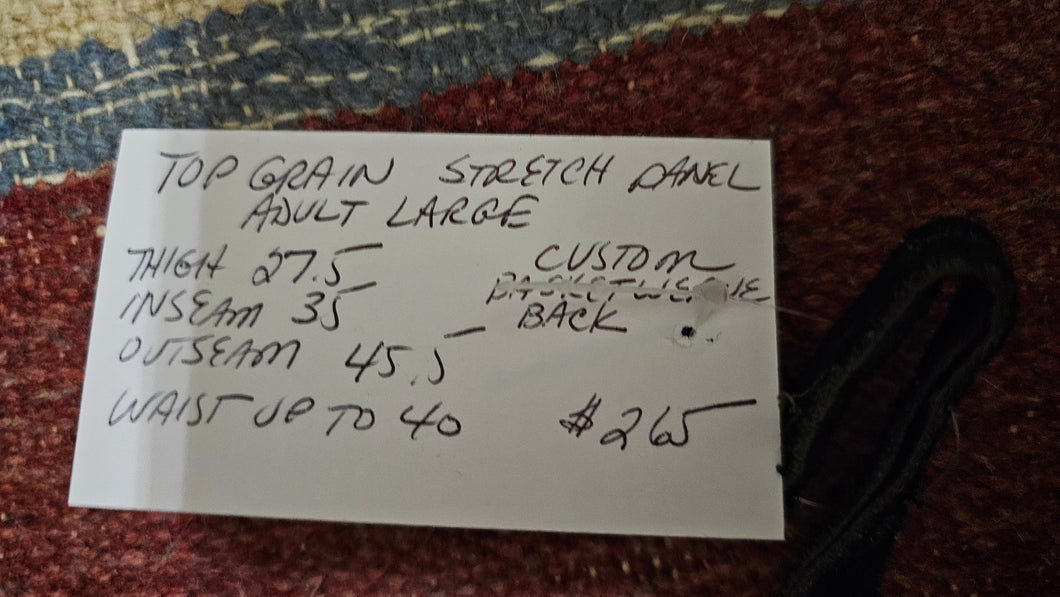 TOP GRAIN STRETCH PANEL
ADULT LARGE
THIGH 27.5
INSEAM 35
OUTSEAM 45.5
WAIST UP TO 40
CUSTOM
BACK
$265